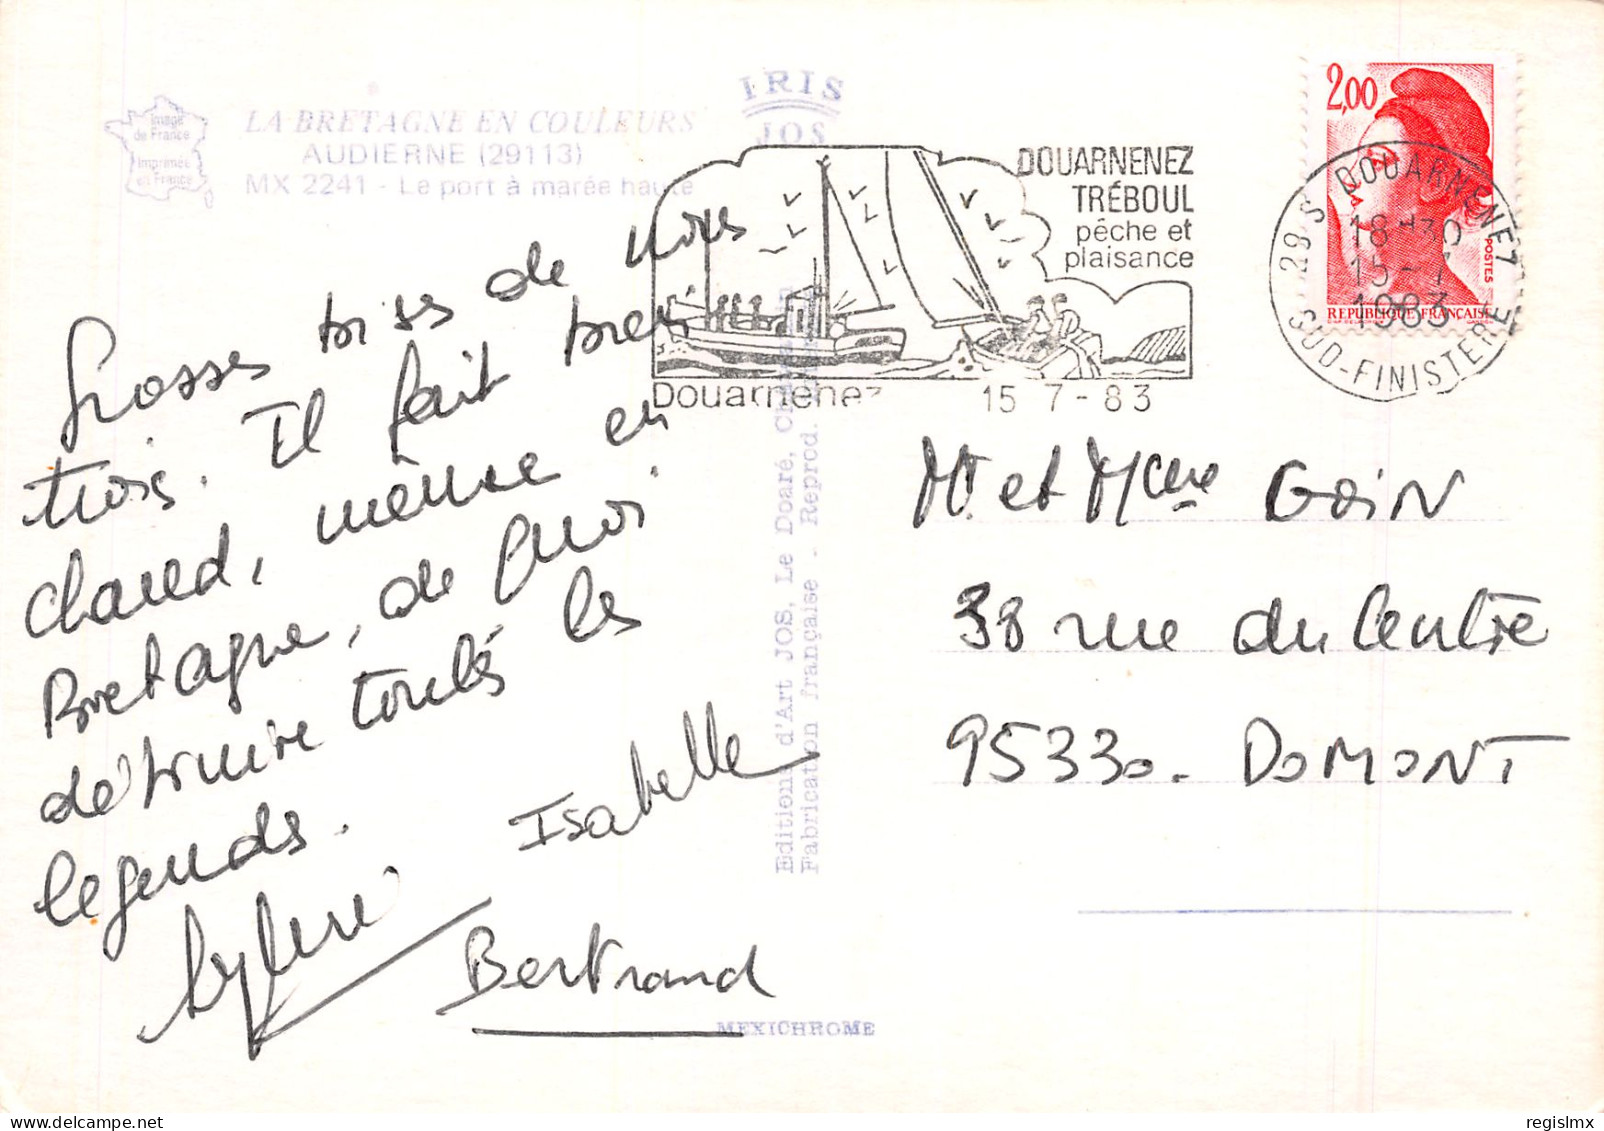 Image
de France
Imprimée
en France
LA BRETAGNE EN COULEURS
AUDIERNE (29113)
MX 2241 - Le port à marée haute
IRIS
JOS
DOUARNENEZ
TRÉBOUL
pêche et
plaisance
Douarnenez 15 7 - 83
2,00
POSTES
REPUBLIQUE FRANÇAISE
29 S DOUARNENEZ
18H30
15-7
1983
SUD-FINISTERE
Grosses bises de nous
trois. Il fait très
chaud, même en
Bretagne, de quoi
détruire toutes les
legends.
Isabelle
Bertrand
Mr et Mme GOIN
38 rue du Centre
95330. DOMONT
Editions d'Art JOS, Le Doaré,
Fabrication française - Reprod.
MEXICHROME
regislmx